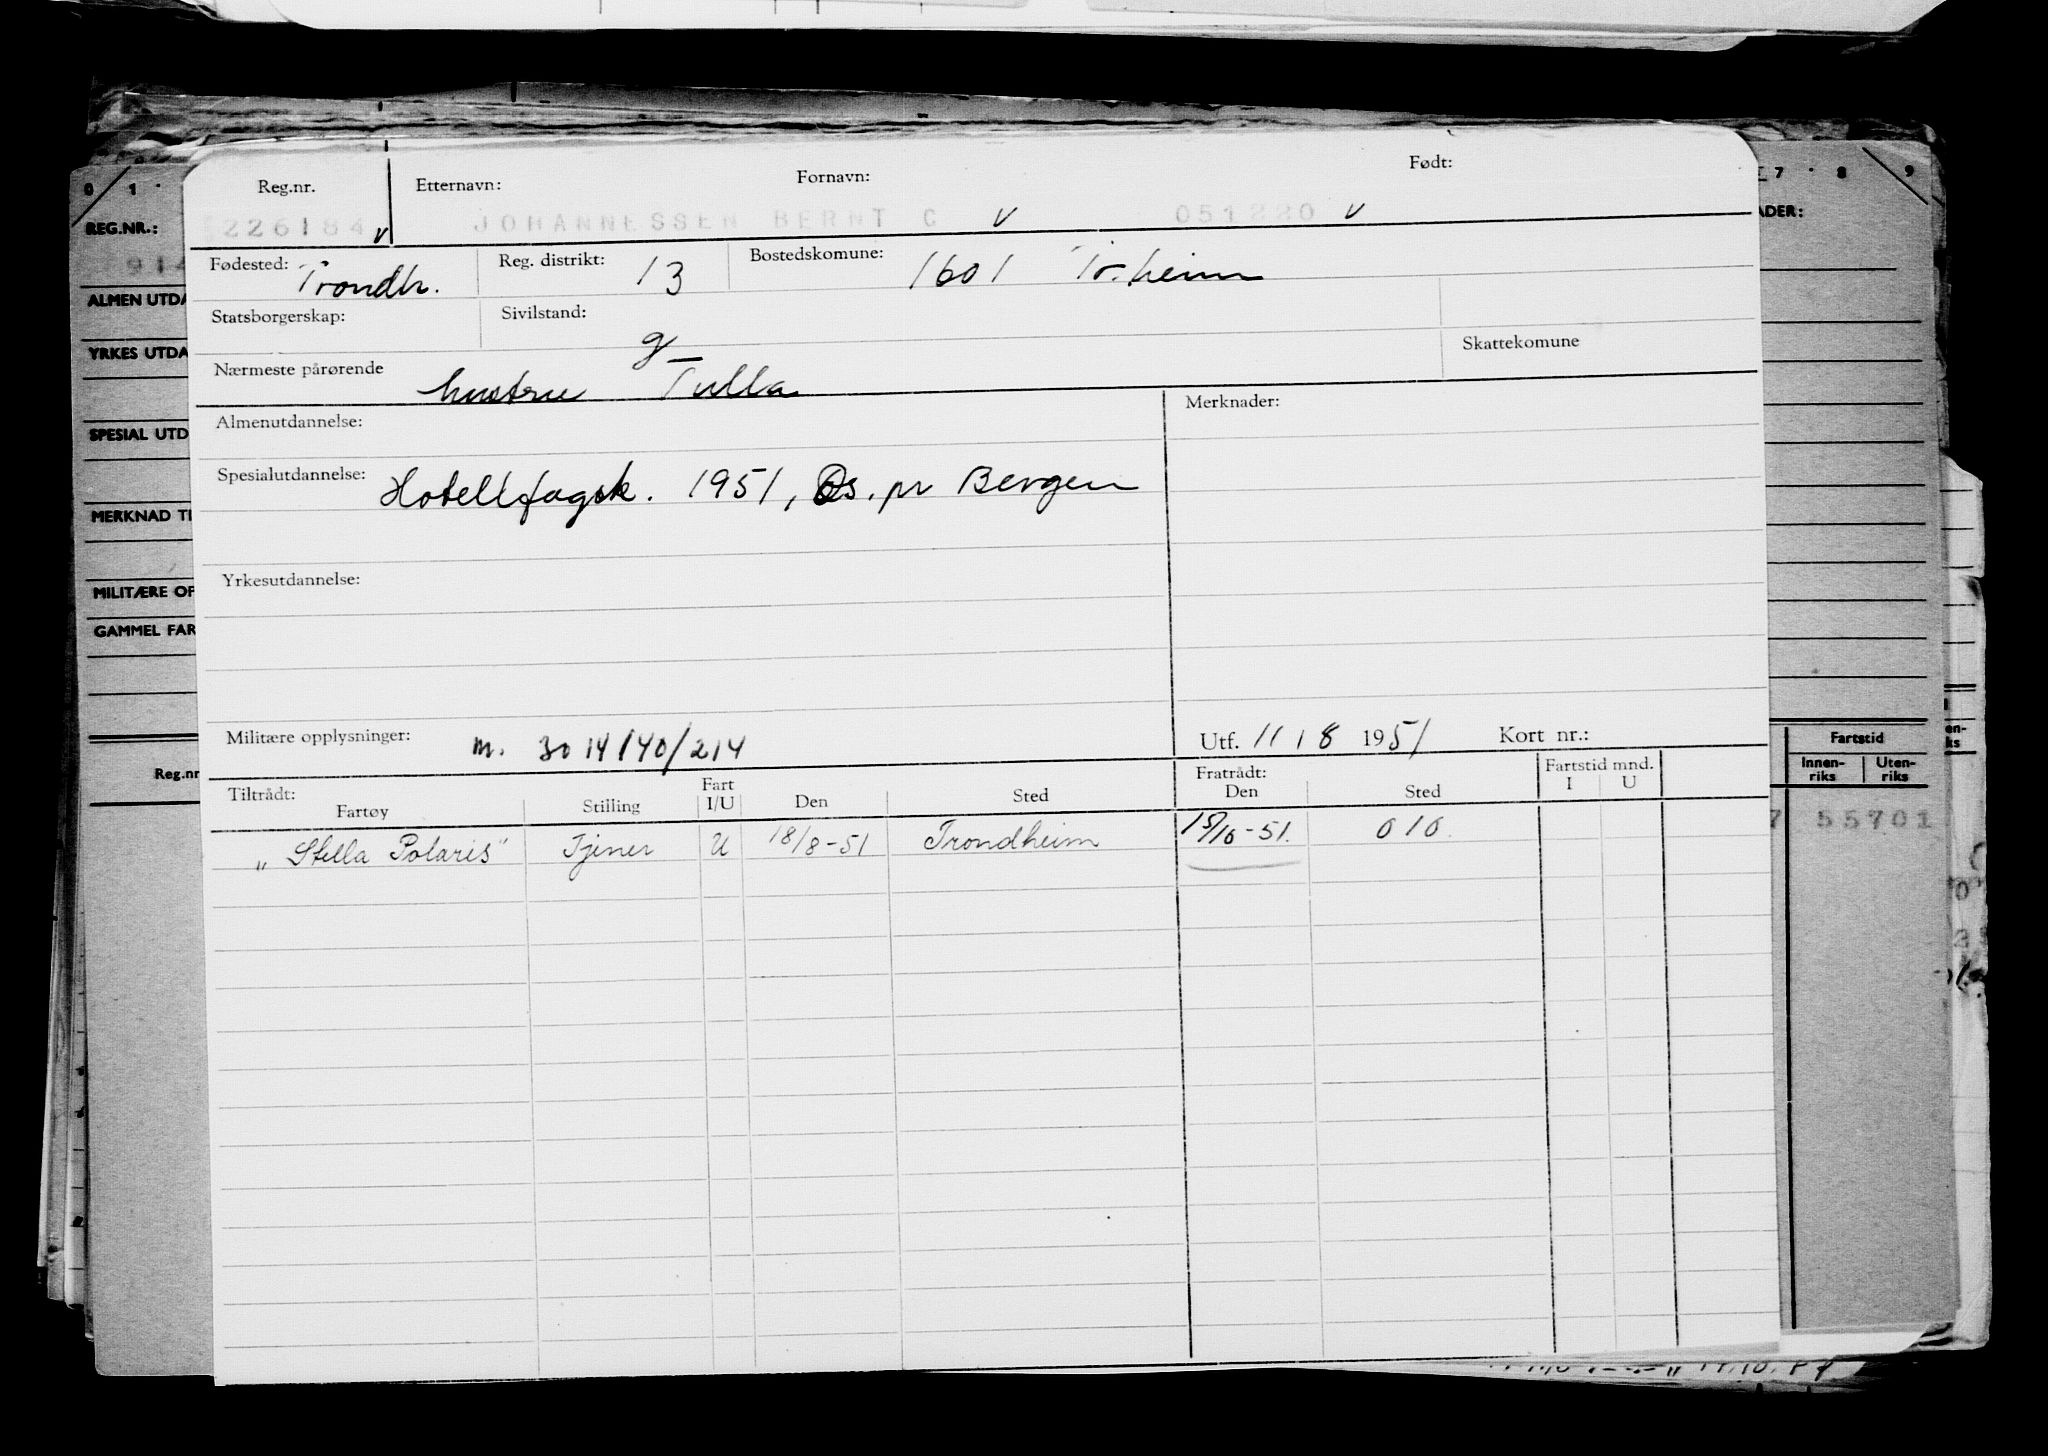 0 1 7 8 9
Reg.nr. Etternavn: Fornavn: Født:
226184 v JOHANNESSEN BERNT C v 051220 v
Fødested: Trondh. Reg. distrikt: 13 Bostedskomune: 1601 Tr.heim
Statsborgerskap: Sivilstand: g Skattekomune
Nærmeste pårørende hustru Tulla
Almenutdannelse: Merknader:
Spesialutdannelse: Hotellfagsk. 1951, Os. pr Bergen
Yrkesutdannelse:
Militære opplysninger: m. 3014/40/214 Utf. 11/8 1951 Kort nr.:
Tiltrådt: Fart Fratrådt: Fartstid mnd.
Fartøy Stilling I/U Den Sted Den Sted I U
„Stella Polaris" Tjener U 18/8-51 Trondheim 15/10-51. 010.
REG.NR.:
914
ALMEN UTDA
YRKES UTDA
SPESIAL UTD
MERKNAD TI
MILITÆRE OP
GAMMEL FAR
Reg.nr
ADER:
Fartstid
Innen-riks Uten-riks
7 55701